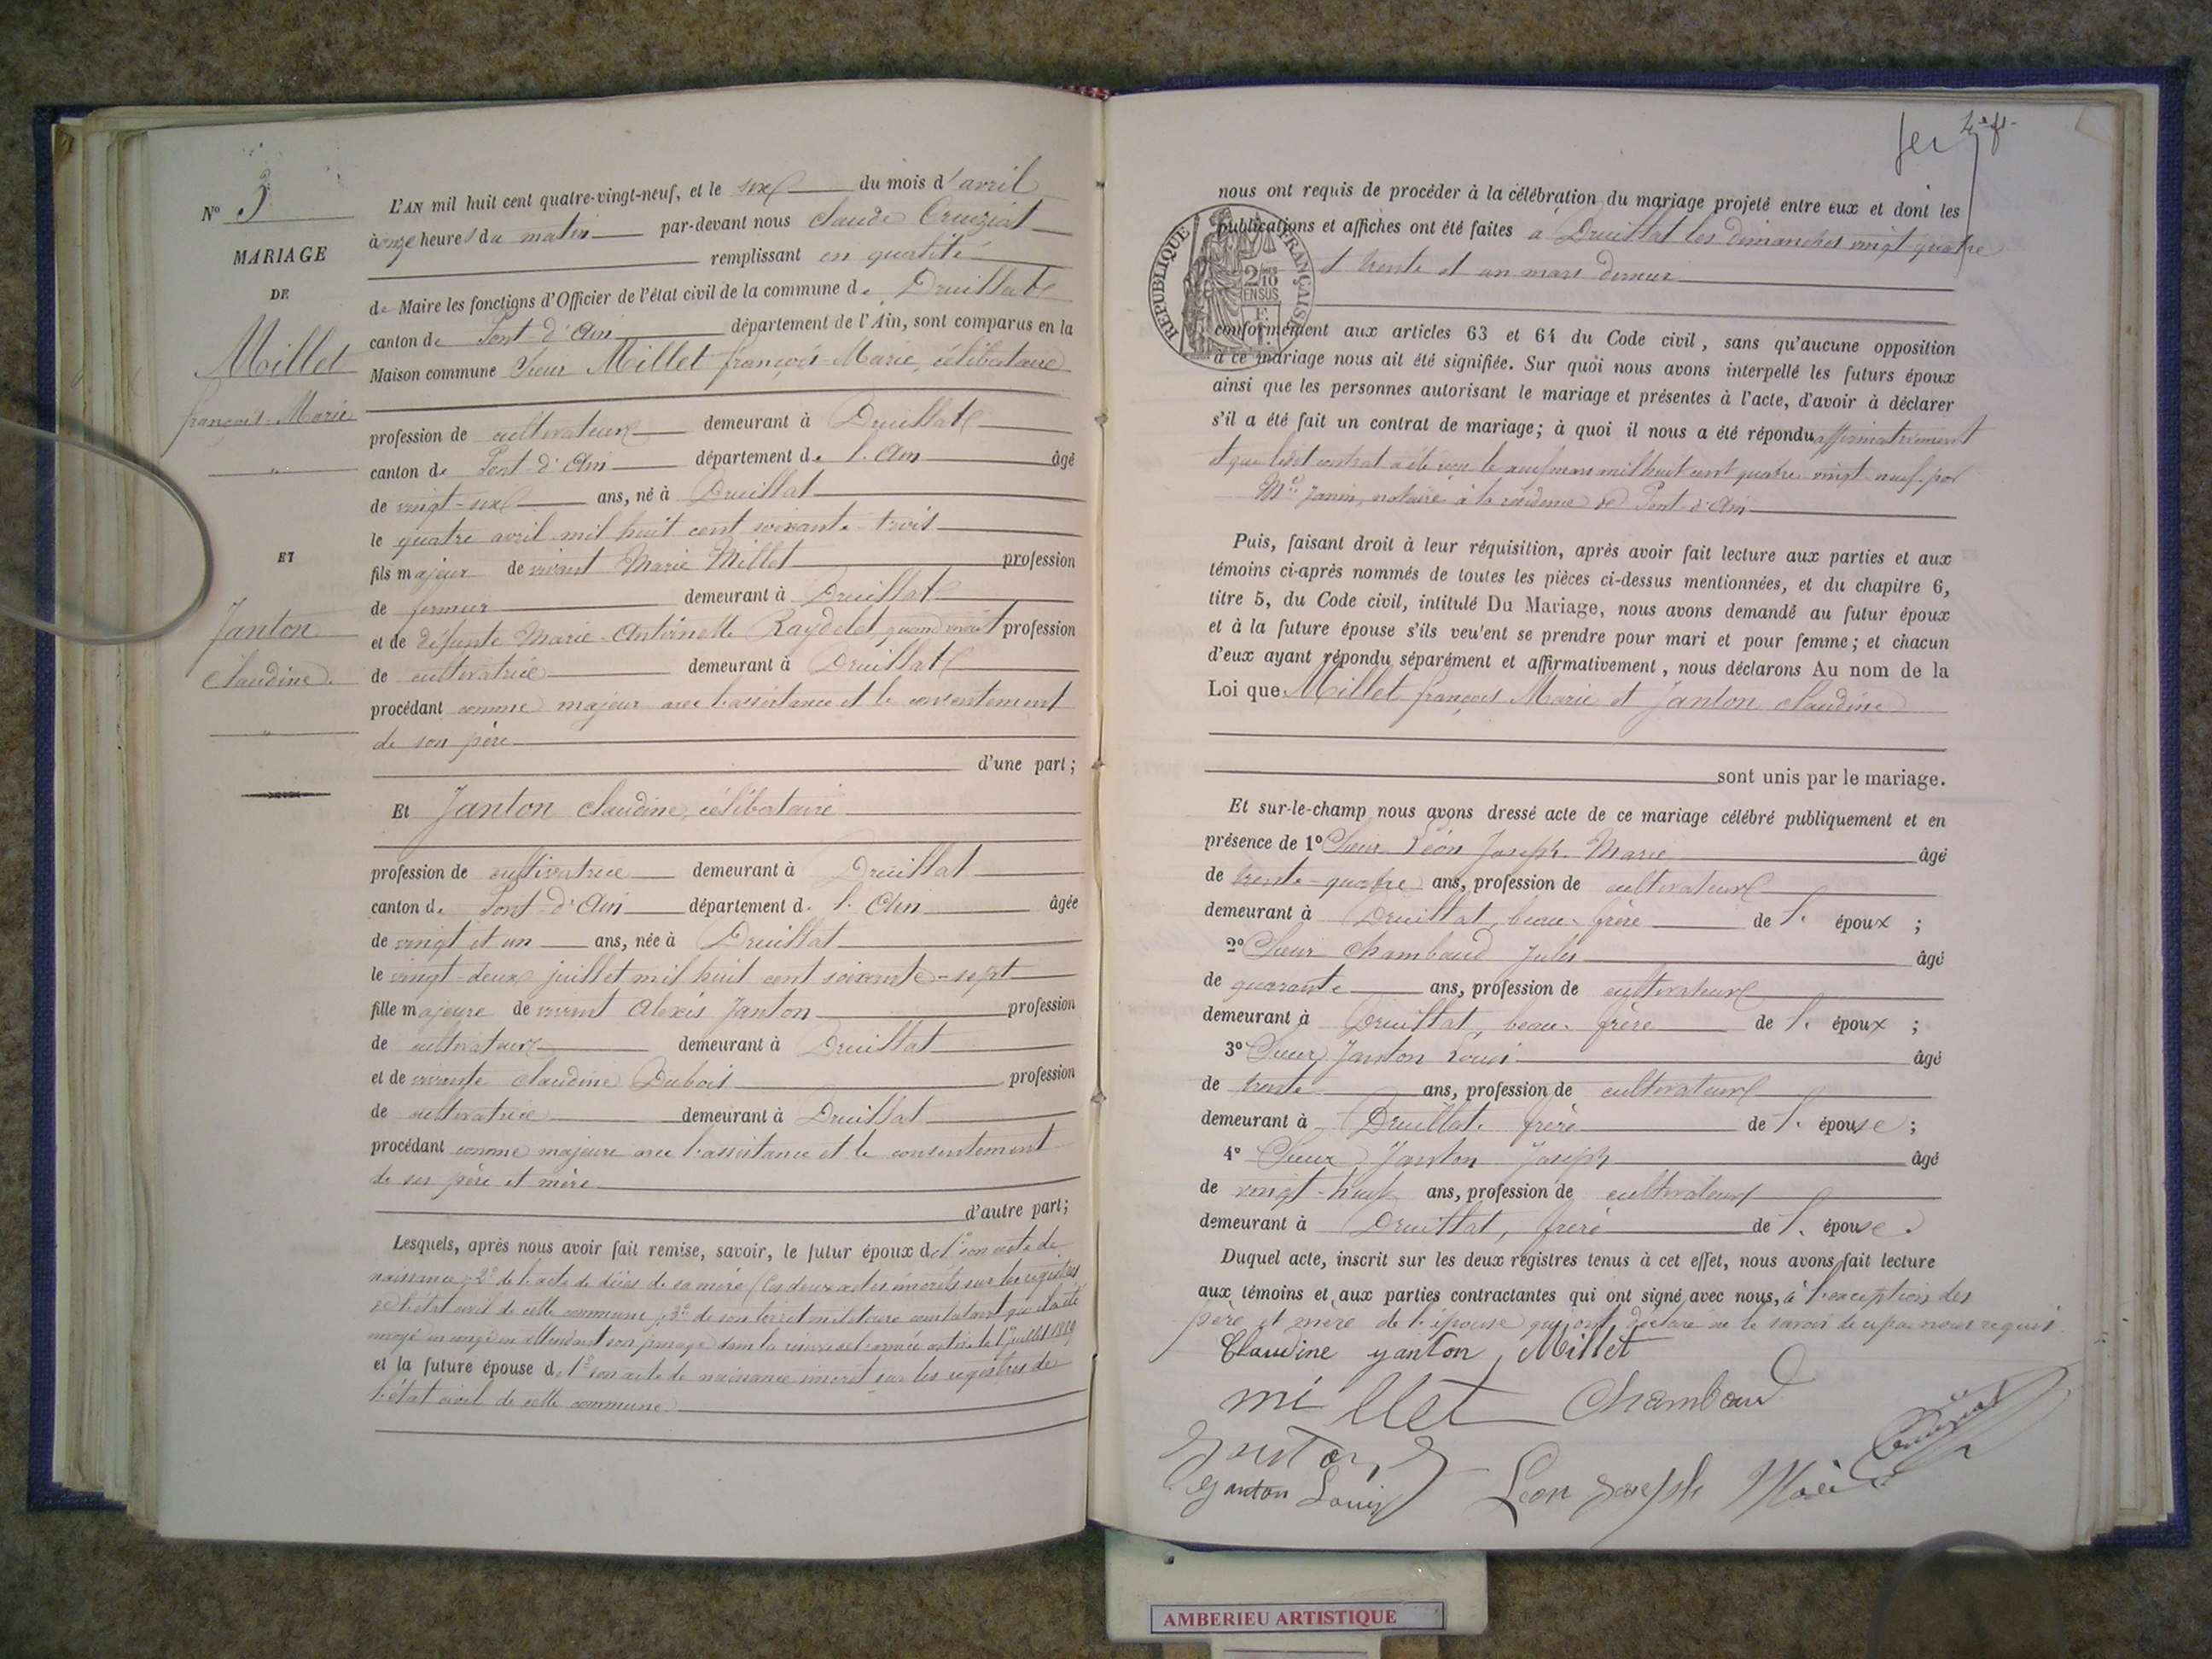 N° 3
MARIAGE
DE
Millet
françois-Marie
ET
Janton
Claudine.
L'AN mil huit cent quatre-vingt-neuf, et le six du mois d'avril
à onze heures du matin par-devant nous Claude Cruiziat
remplissant en qualité
de Maire les fonctions d'Officier de l'état civil de la commune de Druillat
canton de Pont-d'Ain département de l'Ain, sont comparus en la
Maison commune Sieur Millet françois-Marie, célibataire
profession de cultivateur demeurant à Druillat
canton de Pont-d'Ain département de l'Ain âgé
de vingt-six ans, né à Druillat
le quatre avril mil huit cent soixante-trois
fils majeur de vivant Marie Millet profession
de fermier demeurant à Druillat
et de défunte Marie-Antoinette Raydelet, quand vivait profession
de cultivatrice demeurant à Druillat
procédant comme majeur avec l'assistance et le consentement
de son père
d'une part;
Et Janton Claudine, célibataire
profession de cultivatrice demeurant à Druillat
canton de Pont-d'Ain département de l'Ain âgée
de vingt et un ans, née à Druillat
le vingt-deux juillet mil huit cent soixante-sept
fille majeure de vivant Alexis Janton profession
de cultivateur demeurant à Druillat
et de vivante Claudine Dubois profession
de cultivatrice demeurant à Druillat
procédant comme majeure avec l'assistance et le consentement
de ses père et mère
d'autre part;
Lesquels, après nous avoir fait remise, savoir, le futur époux de 1° son acte de
naissance; 2° de l'acte de décès de sa mère (Ces deux actes inscrits sur les registres
de l'état civil de cette commune; 3° de son livret militaire constatant qu'il a été
envoyé en congé en attendant son passage dans la réserve de l'armée active le 1er juillet 1889
et la future épouse de 1° son acte de naissance inscrit sur les registres de
l'état civil de cette commune
nous ont requis de procéder à la célébration du mariage projeté entre eux et dont les
publications et affiches ont été faites à Druillat les dimanches vingt quatre
et trente et un mars dernier
RÉPUBLIQUE FRANÇAISE
2/10
EN SUS
conformément aux articles 63 et 64 du Code civil, sans qu'aucune opposition
à ce mariage nous ait été signifiée. Sur quoi nous avons interpellé les futurs époux
ainsi que les personnes autorisant le mariage et présentes à l'acte, d'avoir à déclarer
s'il a été fait un contrat de mariage; à quoi il nous a été répondu affirmativement
et que ledit contrat a été reçu le neuf mars mil huit cent quatre-vingt-neuf par
Me Janin, notaire à la résidence de Pont-d'Ain
Puis, faisant droit à leur réquisition, après avoir fait lecture aux parties et aux
témoins ci-après nommés de toutes les pièces ci-dessus mentionnées, et du chapitre 6,
titre 5, du Code civil, intitulé Du Mariage, nous avons demandé au futur époux
et à la future épouse s'ils veulent se prendre pour mari et pour femme; et chacun
d'eux ayant répondu séparément et affirmativement, nous déclarons Au nom de la
Loi que Millet françois Marie et Janton Claudine
sont unis par le mariage.
Et sur-le-champ nous avons dressé acte de ce mariage célébré publiquement et en
présence de 1° Sieur Léon Joseph-Marie âgé
de trente-quatre ans, profession de cultivateur
demeurant à Druillat, beau-frère de l'époux;
2° Sieur Chambaud Jules âgé
de quarante ans, profession de cultivateur
demeurant à Druillat, beau-frère de l'époux;
3° Sieur Janton Louis âgé
de trente ans, profession de cultivateur
demeurant à Druillat, frère de l'épouse;
4° Sieur Janton Joseph âgé
de vingt-huit ans, profession de cultivateur
demeurant à Druillat, frère de l'épouse.
Duquel acte, inscrit sur les deux registres tenus à cet effet, nous avons fait lecture
aux témoins et aux parties contractantes qui ont signé avec nous, à l'exception des
père et mère de l'épouse qui ont déclaré ne le savoir de ce par nous requis
Claudine yanton Millet
millet Chambaud
Janton J
Cruiziat
Janton Louis Léon Joseph Marie
AMBERIEU ARTISTIQUE